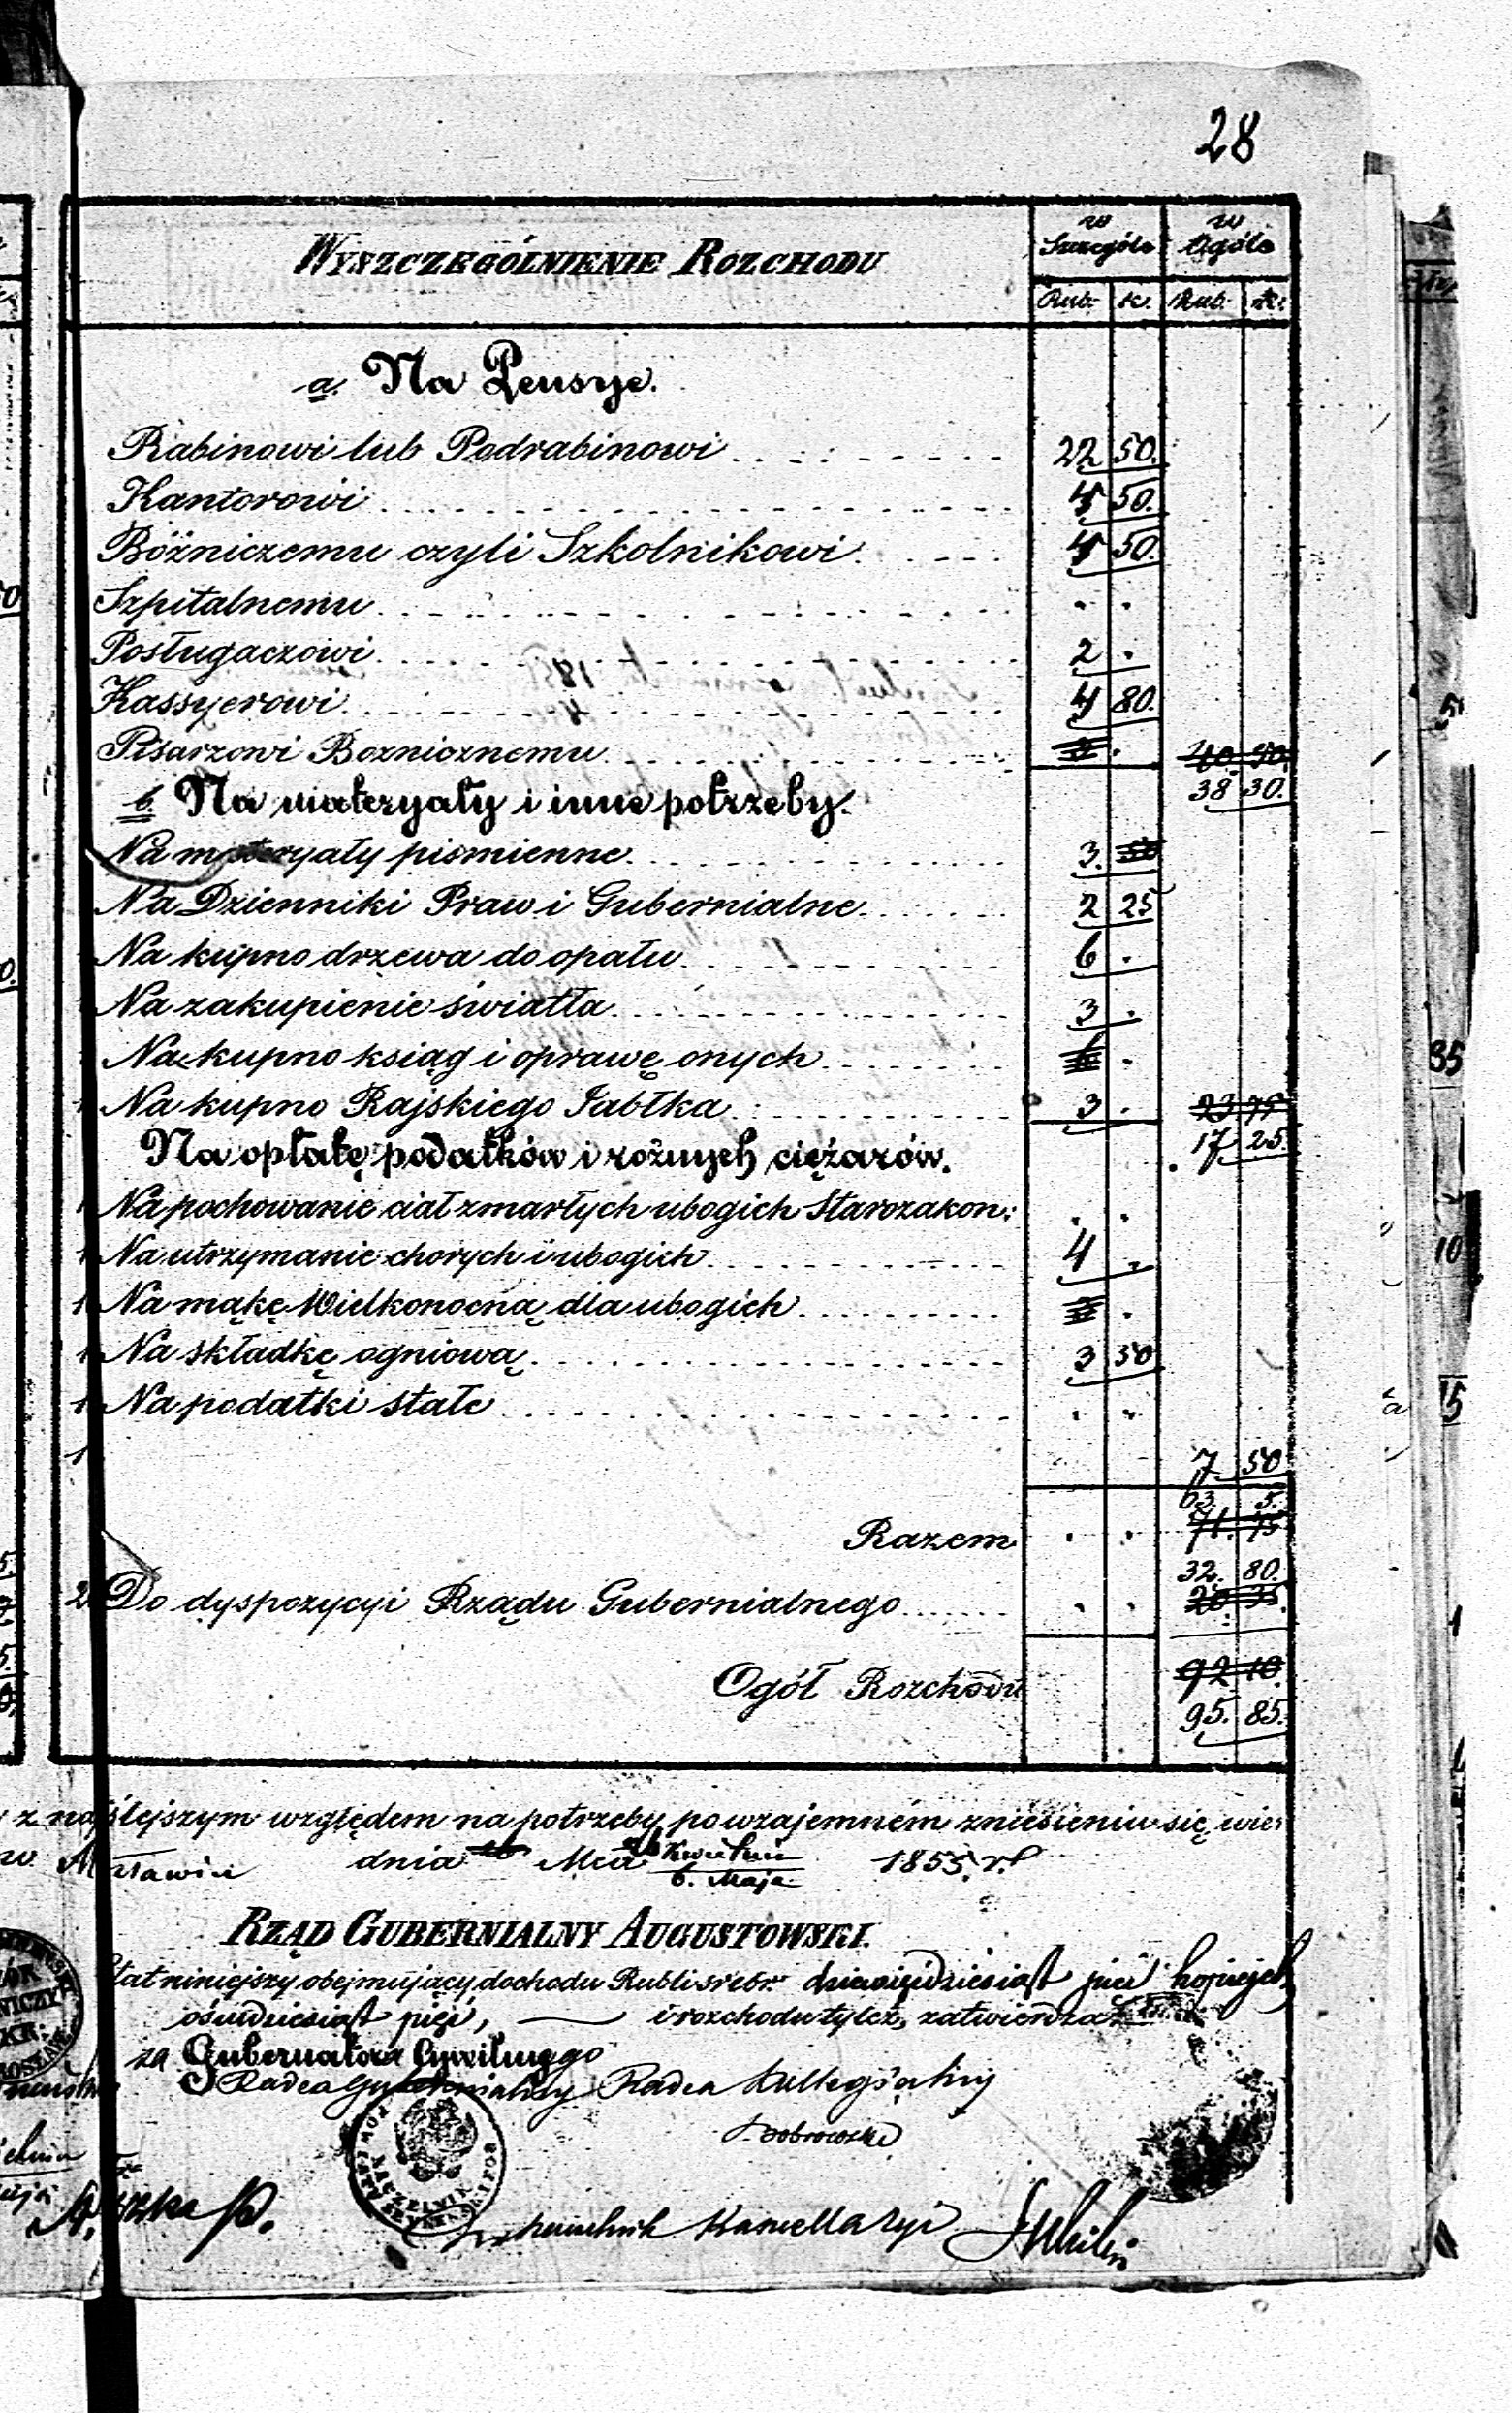 28
WYSZCZEGÓLNIENIE ROZCHODU
w Szczególe
w Ogóle
Rub. k. Rub. k.
a. Na Pensye.
Rabinowi lub Podrabinowi 22 50.
Kantorowi 4 50.
Bóźniczemu czyli Szkolnikowi 4 50.
Szpitalnemu
Posługaczowi 2
Kassyerowi 4 80.
Pisarzowi Boznicznemu
38 30.
b. Na materyały i inne potrzeby.
Na materyały piśmienne 3. 50
Na Dzienniki Praw i Gubernialne 2 25
Na kupno drzewa do opału 6
Na zakupienie światła 3
Na kupno ksiąg i oprawę onych
Na kupno Rajskiego Jabłka 3 23 75
17 25.
Na opłatę podatków i rożnych ciężarów.
Na pochowanie ciał zmarłych ubogich Starozakon:
Na utrzymanie chorych i ubogich 4
Na mąkę Wielkonocną dla ubogich
Na składkę ogniową 3 50
Na podatki stałe
7 50
63. 5.
Razem 71. 75
32. 80.
Do dyspozycyi Rządu Gubernialnego 20 35.
Ogół Rozchodu 92 10.
95. 85.
z najślejszym względem na potrzeby po wzajemném zniesieniu się
dnia Mca Kwietnia 1855. r.
6. Maja
RZĄD GUBERNIALNY AUGUSTOWSKI.
Etat niniejszy obejmujący dochodu Rubli srebr. dziewięćdziesiąt pięć kopiejek
ośmdziesiąt pięć, i rozchodu tyleż, zatwierdza
za Gubernatora Cywilnego
Radca Gubernialny Radca Kollegialny
Dobrowolski
NACZELNIK
Naczelnik Kancellaryi